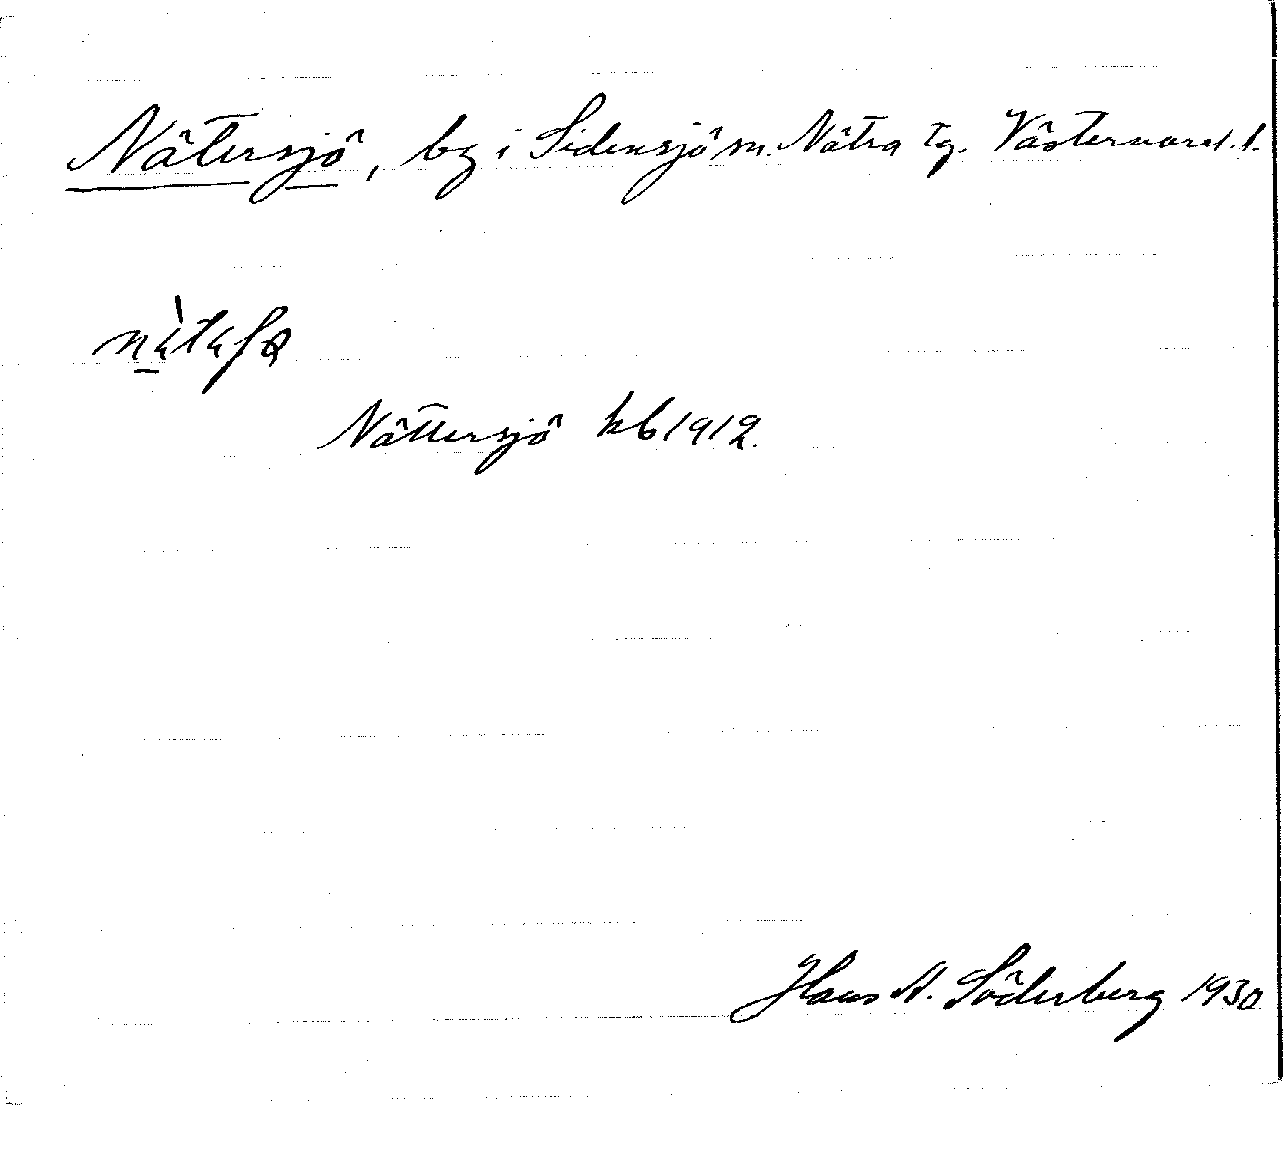 Nätersjö, by i Sidensjö sn. Nätra tg. Västernorrl. l.
Nättersjö kb 1912.
Hans A. Söderberg 1930